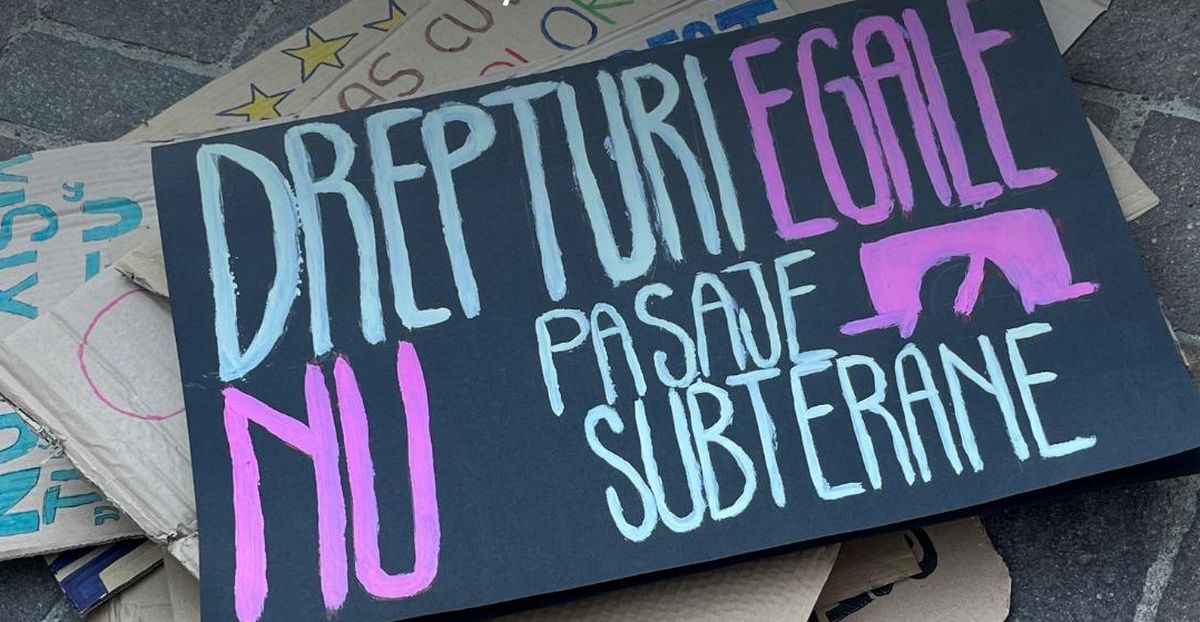 AS CU
DREPTURI EGALE
NU PASAJE
SUBTERANE
NU
TU"